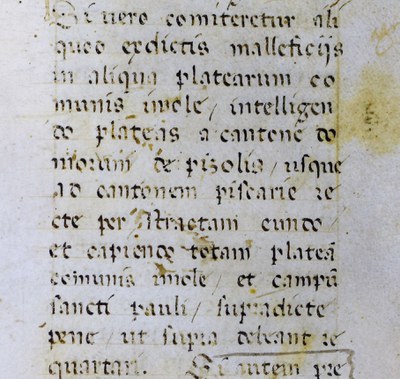 Si vero comiteretur ali
quod exdictis malleficijs
in aliqua platearum co
munis imole / intelligen
do plateas a cantone do
morum de pizolis / usque
ad cantonem piscarie re
cte per stractam eundo
et capiendo totam plateã
comunis imole / et campũ
sancti pauli / supradicte
pene / ut supra debeant re
quartari. Si autem pre